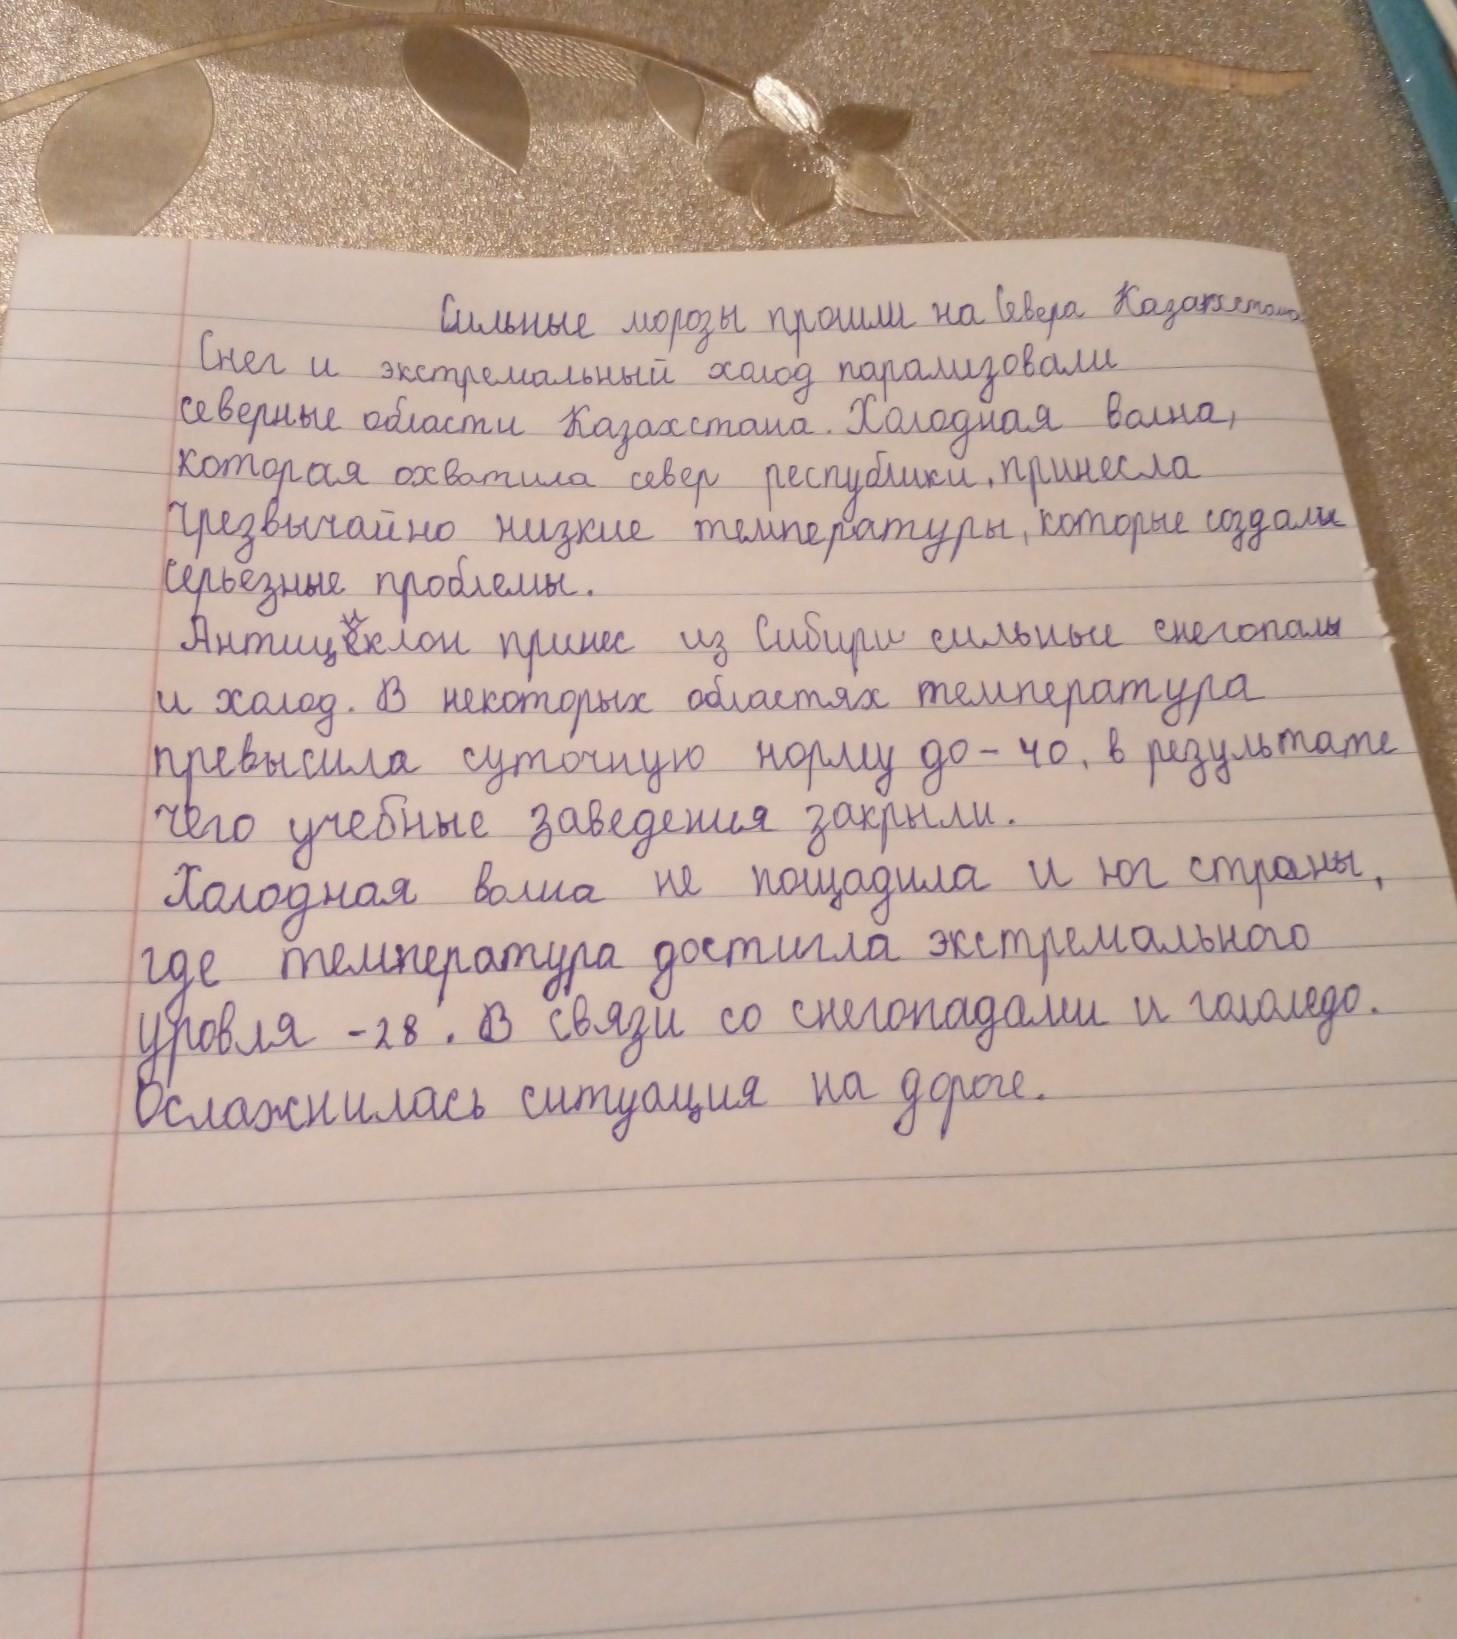 Сильные морозы прошли на Севера Казахстана
Снег и экстремальный холод парализовали
северные области Казахстана. Холодная волна,
которая охватила север республики, принесла
чрезвычайно низкие температуры, которые создали
серьезные проблемы.
Антициклон принес из Сибири сильные снегопалы
и холод. В некоторых областях температура
превысила суточную норму до -40, в результате
чего учебные заведения закрыли.
Холодная волна не пощадила и юг страны,
где температура достигла экстремального
уровня -28. В связи со снегопадами и гололедо.
Ослажнилась ситуация на дороге.